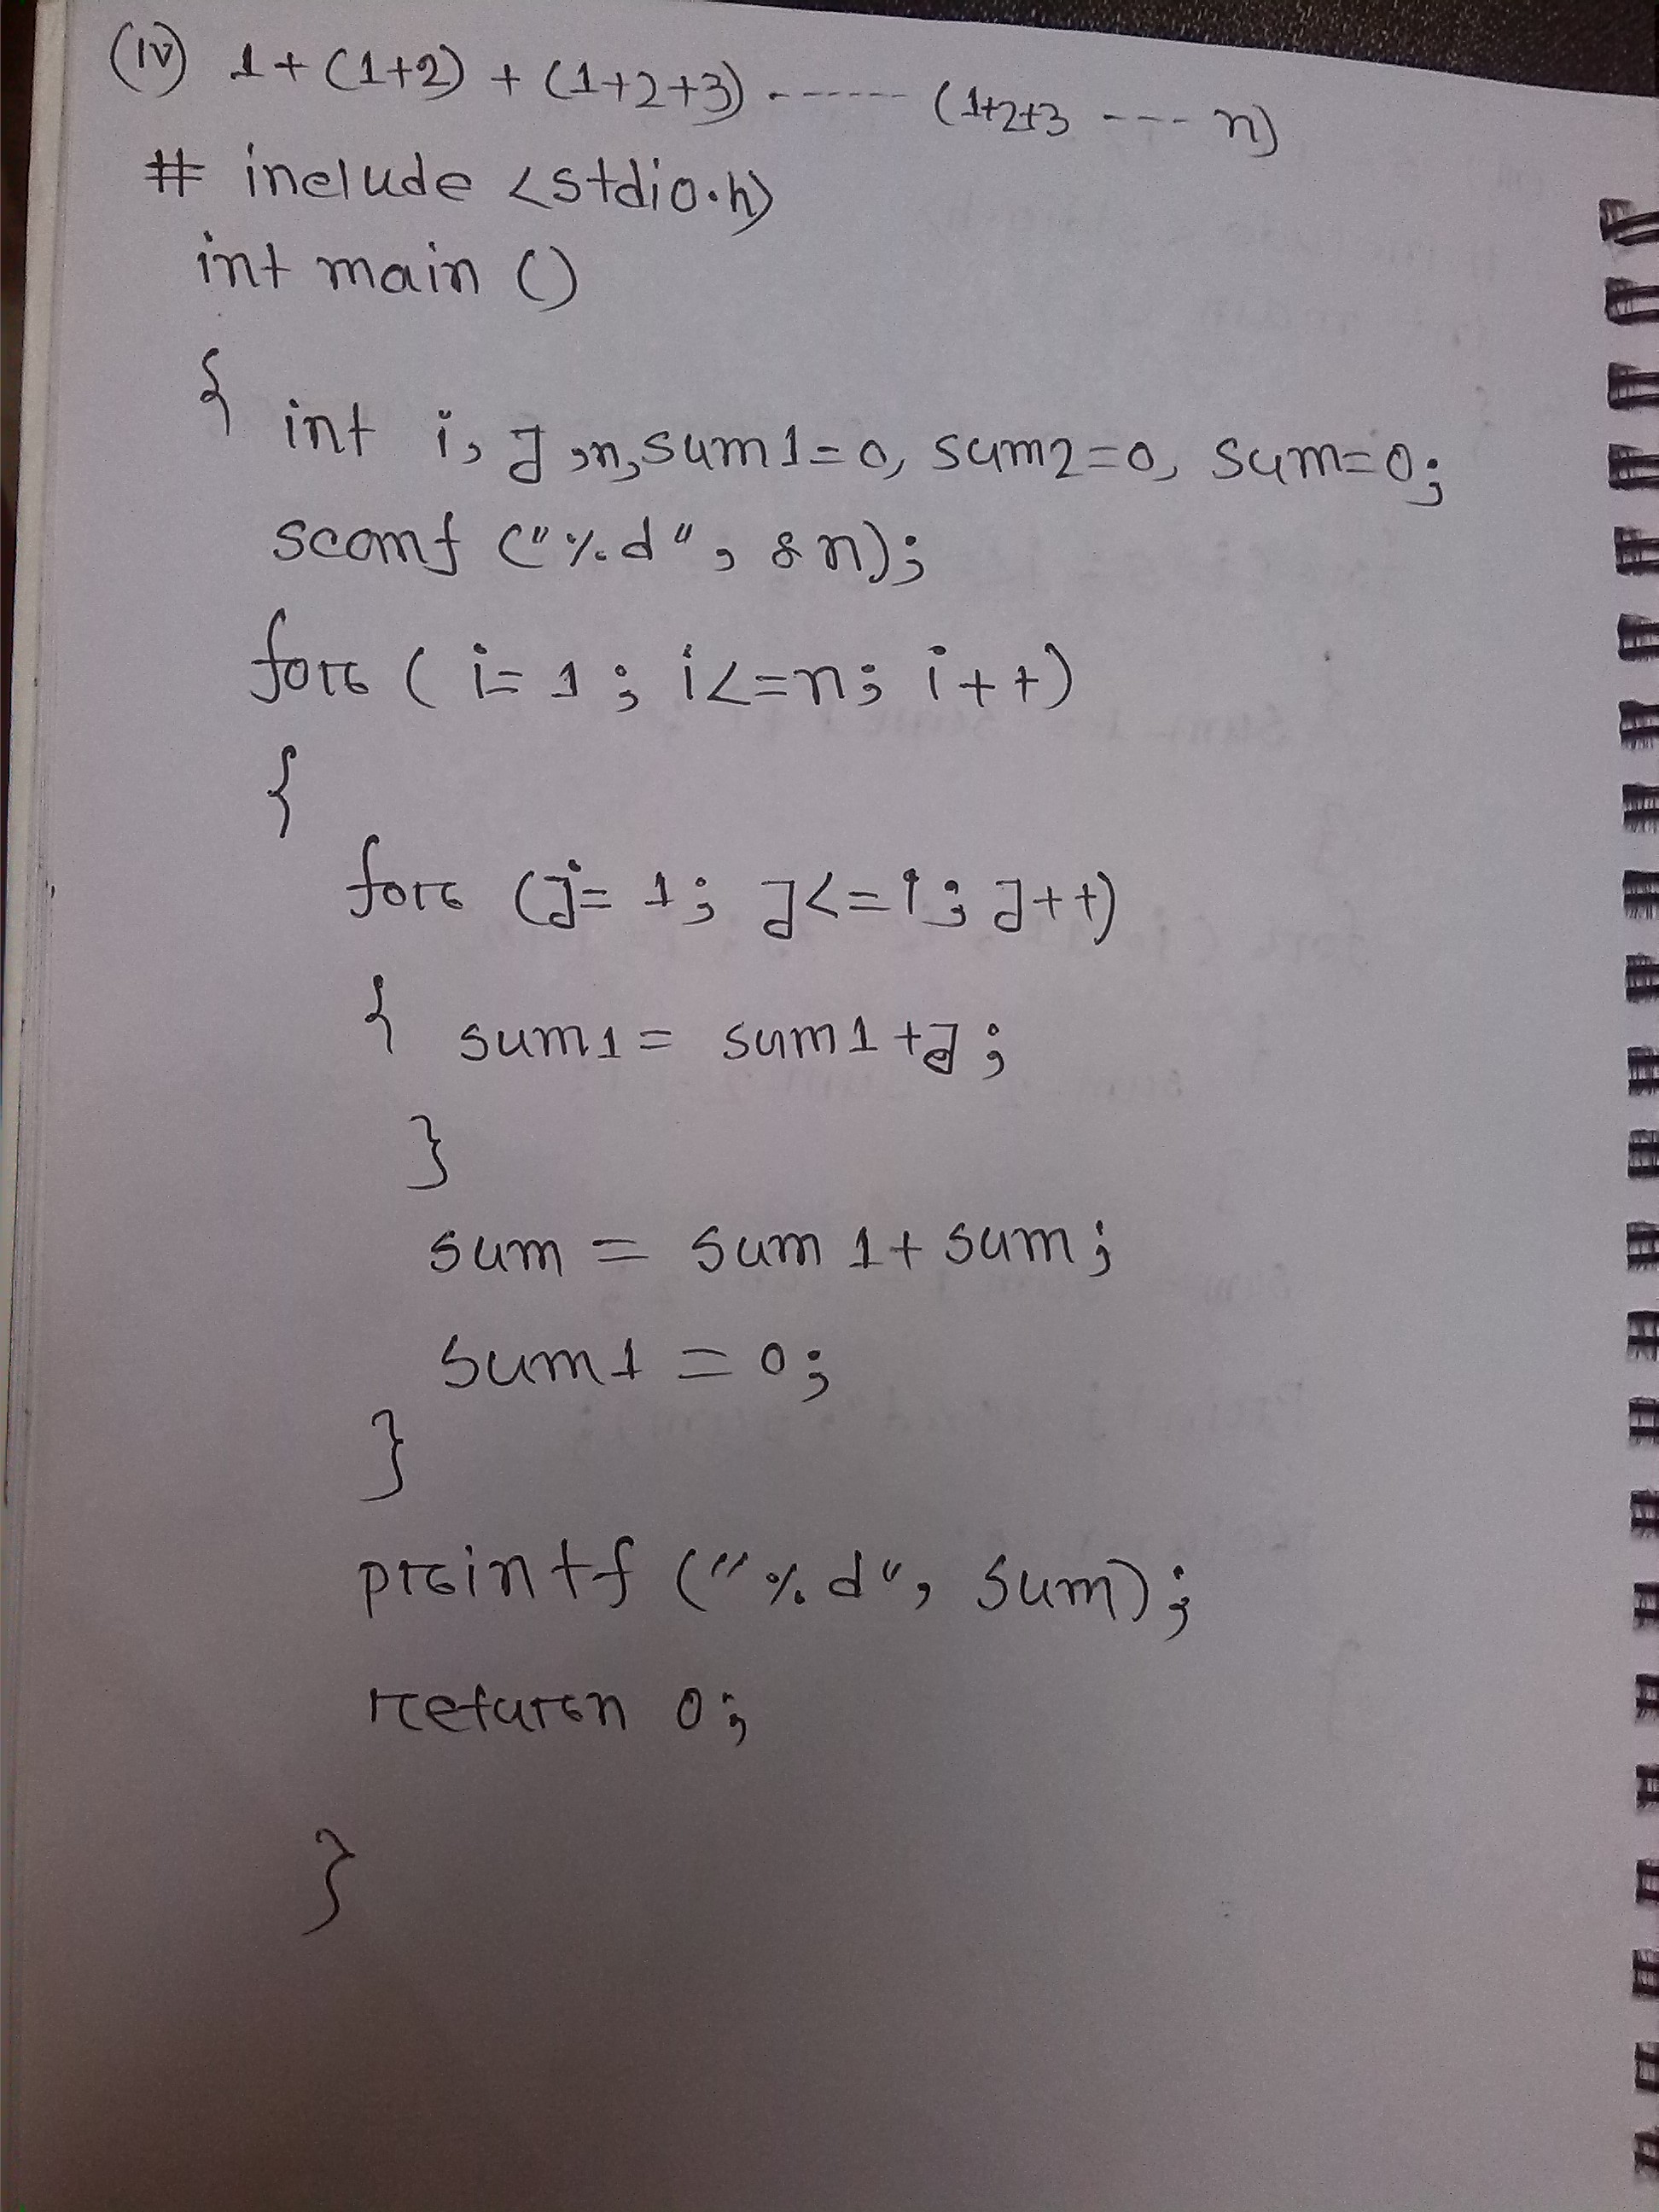 (iv) 1+(1+2)+(1+2+3)------(1+2+3 ---- n)
# include <stdio.h>
int main ()
{
int i, j, n, sum1=0, sum2=0, sum=0;
scanf ("%d", &n);
for ( i= 1; i<=n; i++)
{
for (j= 1; j<=i; j++)
{ sum1= sum1+j;
}
sum = sum 1+ sum;
sum1 = 0;
}
printf ("%d", sum);
return 0;
}